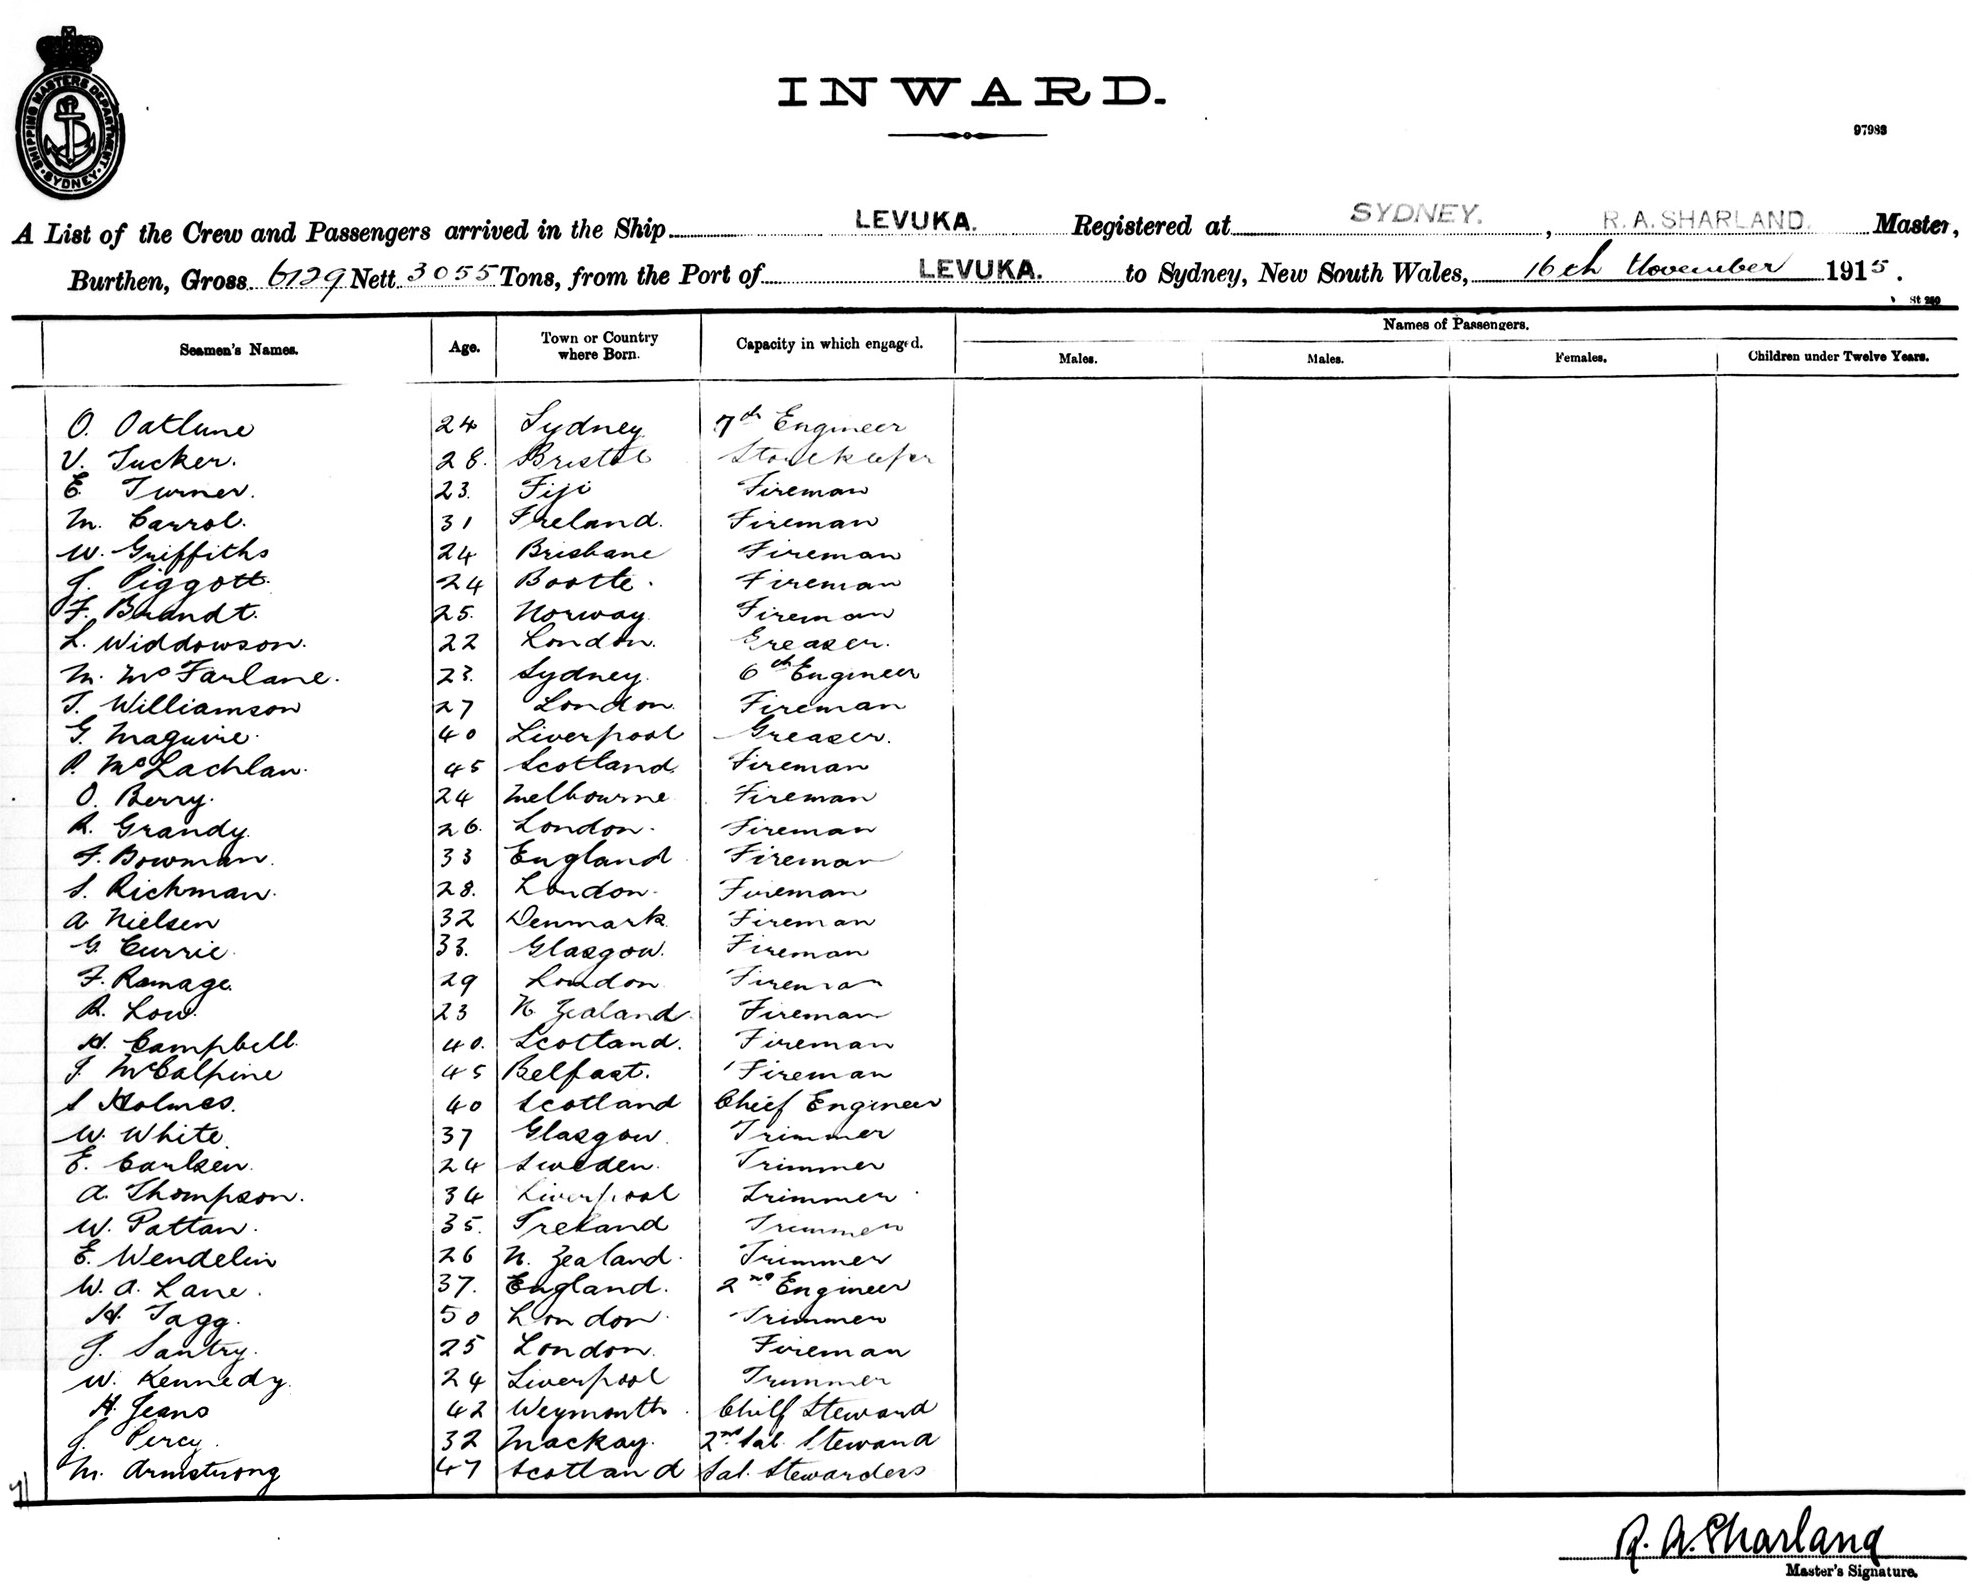 SHIPPING MASTERS DEPARTMENT
SYDNEY
INWARD.
97983
A List of the Crew and Passengers arrived in the Ship LEVUKA. Registered at SYDNEY. , R. A. SHARLAND. Master,
Burthen, Gross 6129 Nett 3055 Tons, from the Port of LEVUKA. to Sydney, New South Wales, 16th November 1915.
St 240
Seamen's Names. Age. Town or Country where Born. Capacity in which engaged. Names of Passengers.
Males. Males. Females. Children under Twelve Years.
O. 24 Sydney 7th Engineer
V. Tucker. 28. Bristol Storekeeper
E. Turner. 23. Fiji Fireman
M. Carrol. 31 Ireland. Fireman
W. Griffiths 24 Brisbane Fireman
J. Piggott. 24 Bootle. Fireman
F. Brandt. 25. Norway Fireman
L. Widdowson. 22 London. Greaser.
M. McFarlane. 23. Sydney. 6th Engineer
T. Williamson 27 London. Fireman
G. Maguire. 40 Liverpool Greaser.
P. McLachlan. 45 Scotland. Fireman
O. Berry. 24 Melbourne Fireman
R. Grandy. 26. London. Fireman
F. Bowman. 33 England Fireman
S. Richman. 28. London. Fireman
A Nielsen 32 Denmark Fireman
G. Currie. 33. Glasgow. Fireman
F. Ramage. 29 London Fireman
R. Low. 23 N Zealand. Fireman
H. Campbell. 40. Scotland. Fireman
J. McCalpine 45 Belfast. Fireman
S Holmes. 40 Scotland Chief Engineer
W. White. 37 Glasgow. Trimmer
E. Carlsen. 24 Sweden. Trimmer
A. Thompson. 34 Liverpool Trimmer
W. Pattan. 35. Ireland Trimmer
E. Wendelin 26 N. Zealand. Trimmer
W. A. Lane. 37. England. 2nd Engineer
H. Tagg. 50 London. Trimmer
J. Santry. 25 London. Fireman
W. Kennedy. 24 Liverpool Trimmer
H. Jeans 42 Weymouth. Chief Steward
J. Percy. 32 Mackay. 2nd Sal. Steward
M. Armstrong 47 Scotland Sal. Stewardess
R. A. Sharland
Master's Signature.